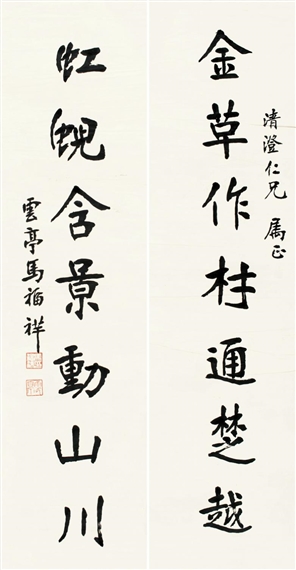 清澄仁兄 属正
金草作材通楚越
虹蜺含景動山川
雲亭馬福祥